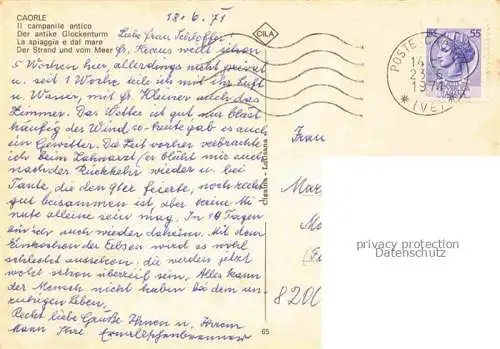 CAORLE
Il campanile antico
Der antike Glockenturm
La spiaggia e dal mare
Der Strand und vom Meer
18.6.71
Liebe Frau
Fr. Kraus weilt schon
5 Wochen hier, allerdings nicht privat
u. seit 1 Woche teile ich mir Luft
u. Wasser, mit Fr. Kleiner auch das
Zimmer. Das Wetter ist gut nur bläst
häufig der Wind so heute gab es auch
ein Gewitter. Die Zeit vorher verbrachte
ich beim Zahnarzt, es blüht mir auch
nach der Rückkehr wieder u. bei
Tante, die den 91er feierte, noch recht
gut beisammen ist, aber keine Mi
nute alleine sein mag. In 10 Tagen
bin ich auch wieder daheim. Mit dem
Einkochen der Erbsen wird es wohl
schlecht aussehen, die werden jetzt
wohl schon überreif sein. Alles kann
der Mensch nicht haben bei dem un-
ruhigen Leben.
Recht liebe Grüße Ihnen u. Ihrem
Mann Ihre
CILA
65
POSTE
1971
(VE)
55
Frau
Mar
820
privacy protection
Datenschutz